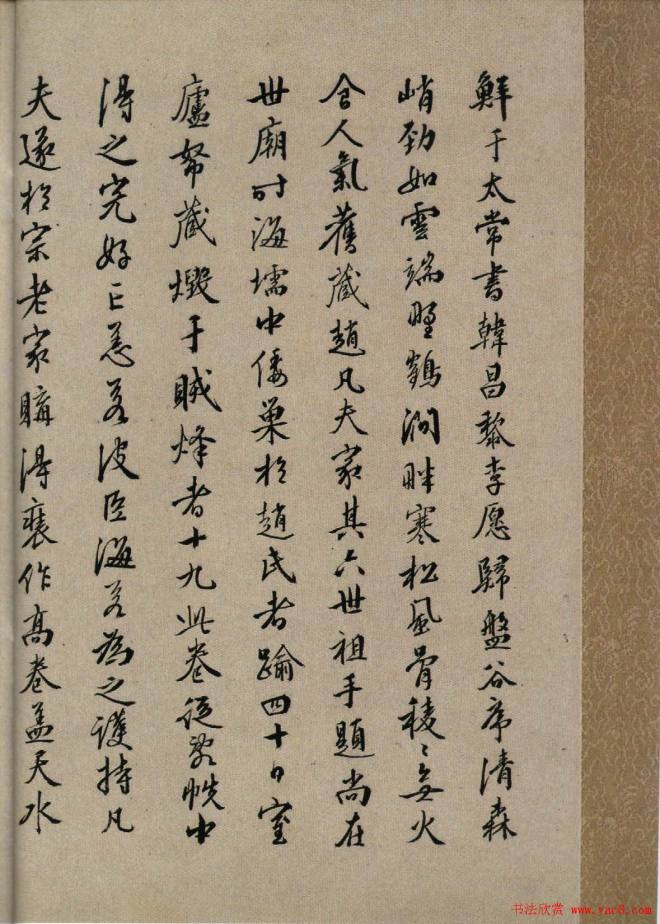 鮮于太常書韓昌黎李愿歸盤谷序清森
峭勁如雲端野鶴澗畔寒松風骨稜〻無火
食人氣舊藏趙凡夫家其六世祖手題尚在
世廟時海壖中倭巢於趙氏者踰四十日室
廬帑藏燬于賊烽者十九此卷從帙中
得之完好亡恙若波臣海若為之護持凡
夫遂於宗老家購得裝作高卷蓋天水
书法欣赏 www.yac8.com